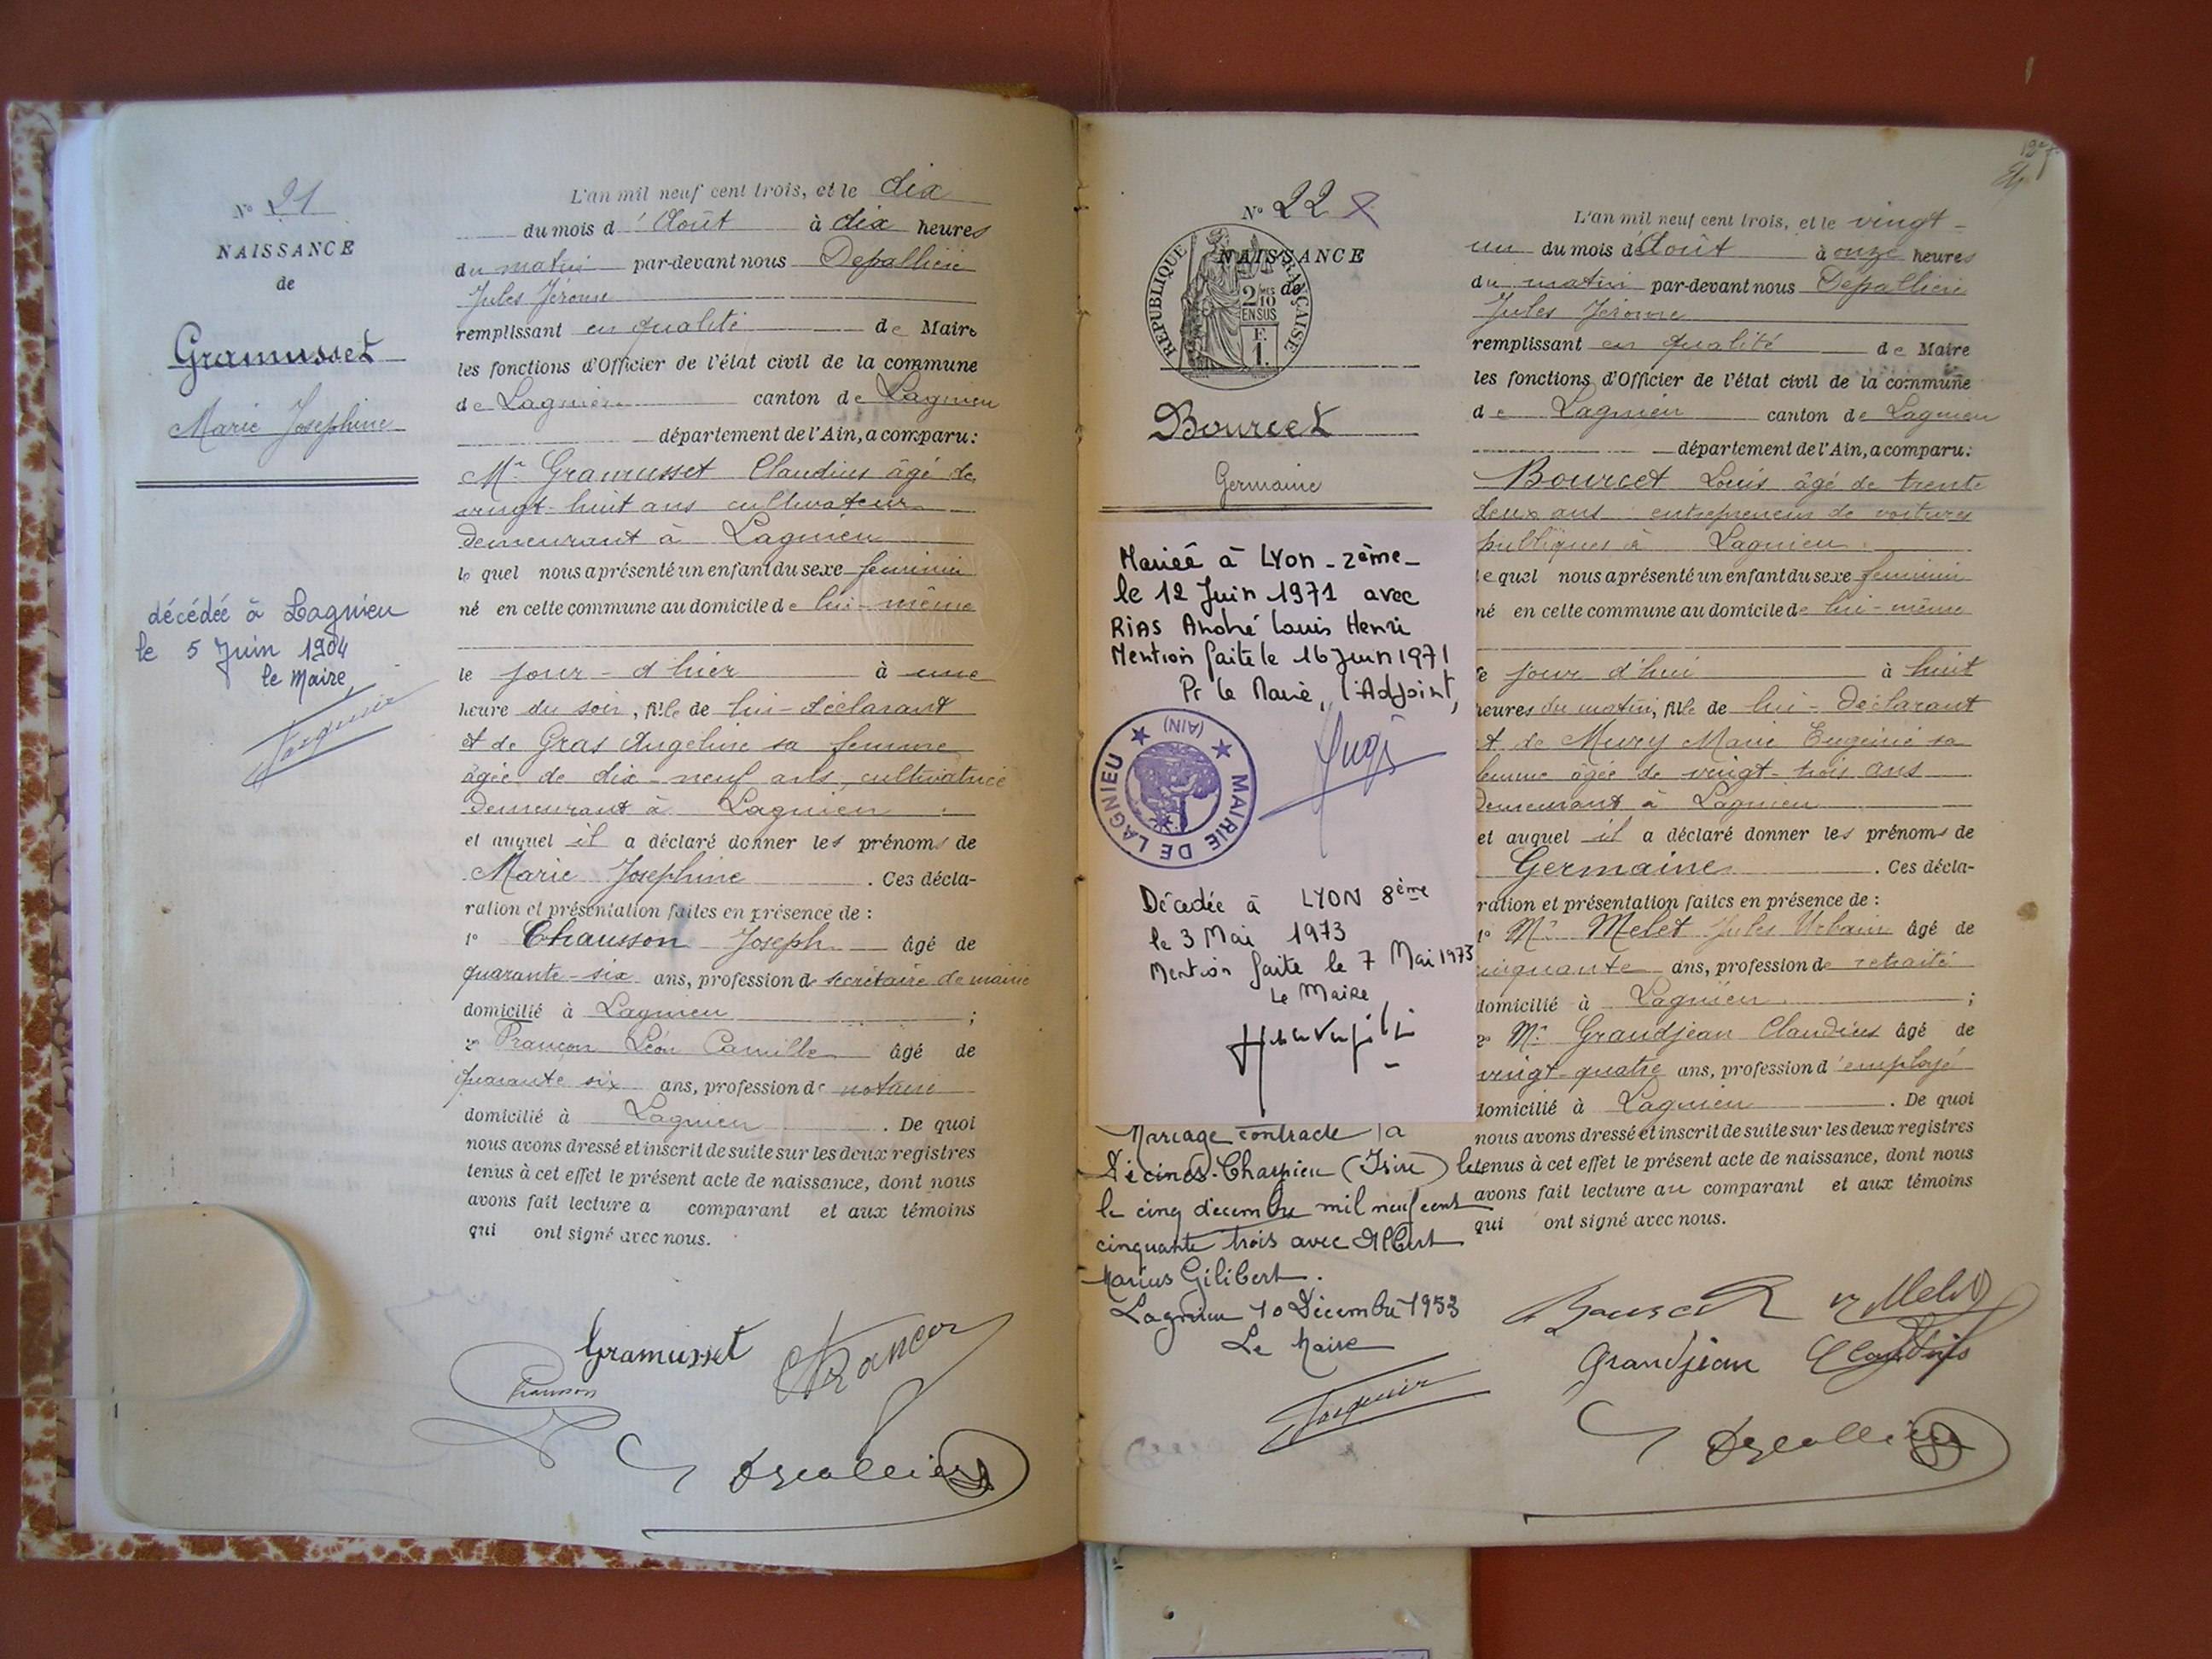 N° 21
NAISSANCE
de
Gramusset
Marie Josephine
décédée à Lagnieu
le 5 Juin 1904
le Maire
L'an mil neuf cent trois, et le dix
du mois d'Août à dix heures
du matin par-devant nous Depallière
Jules Jérome
remplissant en qualité de Maire
les fonctions d'Officier de l'état civil de la commune
de Lagnieu canton de Lagnieu
département de l'Ain, a comparu:
Mr Gramusset Claudius âgé de
vingt-huit ans cultivateur
demeurant à Lagnieu
lequel nous a présenté un enfant du sexe feminin
né en cette commune au domicile de lui-même
le jour-d'hier à une
heure du soir, fille de lui-déclarant
et de Gras Angeline sa femme
âgée de dix-neuf ans, cultivatrice
demeurant à Lagnieu
et auquel il a déclaré donner les prénoms de
Marie Josephine. Ces décla-
ration et présentation faites en présence de :
1° Chausson Joseph âgé de
quarante-six ans, profession de secrétaire de mairie
domicilié à Lagnieu ;
2° Françon Léon Camille âgé de
quarante six ans, profession de notaire
domicilié à Lagnieu. De quoi
nous avons dressé et inscrit de suite sur les deux registres
tenus à cet effet le présent acte de naissance, dont nous
avons fait lecture a comparant et aux témoins
qui ont signé avec nous.
Gramusset Françon
Chausson
Depallière
N° 22
NAISSANCE
de
REPUBLIQUE FRANÇAISE
2/10 EN SUS
F. 1.
Bourcet
Germaine
Mariée à LYon-2ème-
le 12 Juin 1971 avec
RIAS André Louis Henri
Mention faite le 16 Juin 1971
Pr le Maire, l'Adjoint,
MAIRIE DE LAGNIEU (AIN)
Décédée à LYON 8ème
le 3 Mai 1973
Mention faite le 7 Mai 1973
Le Maire
Mariage contracté à
Décines-Charpieu (Isère) le
le cinq décembre mil neuf cent
cinquante trois avec Albert
Marius Gilibert.
Lagnieu 10 Décembre 1953
Le Maire
L'an mil neuf cent trois, et le vingt-
un du mois d'Août à onze heures
du matin par-devant nous Depallière
Jules Jérome
remplissant en qualité de Maire
les fonctions d'Officier de l'état civil de la commune
de Lagnieu canton de Lagnieu
département de l'Ain, a comparu:
Bourcet Louis âgé de trente
deux ans entrepreneur de voitures
publiques à Lagnieu
lequel nous a présenté un enfant du sexe feminin
né en cette commune au domicile de lui-même
le jour d'hui à huit
heures du matin, fille de lui-Déclarant
et de Mury Marie Eugénie sa
femme âgée de vingt-trois ans
Demeurant à Lagnieu
et auquel il a déclaré donner les prénoms de
Germaine. Ces décla-
ration et présentation faites en présence de :
1° Mr Melet Jules Urbain âgé de
cinquante ans, profession de retraité
domicilié à Lagnieu ;
2° Mr Grandjean Claudius âgé de
vingt-quatre ans, profession d'employé
domicilié à Lagnieu. De quoi
nous avons dressé et inscrit de suite sur les deux registres
tenus à cet effet le présent acte de naissance, dont nous
avons fait lecture au comparant et aux témoins
qui ont signé avec nous.
Bourcet Melet
Grandjean Claudius
Depallière